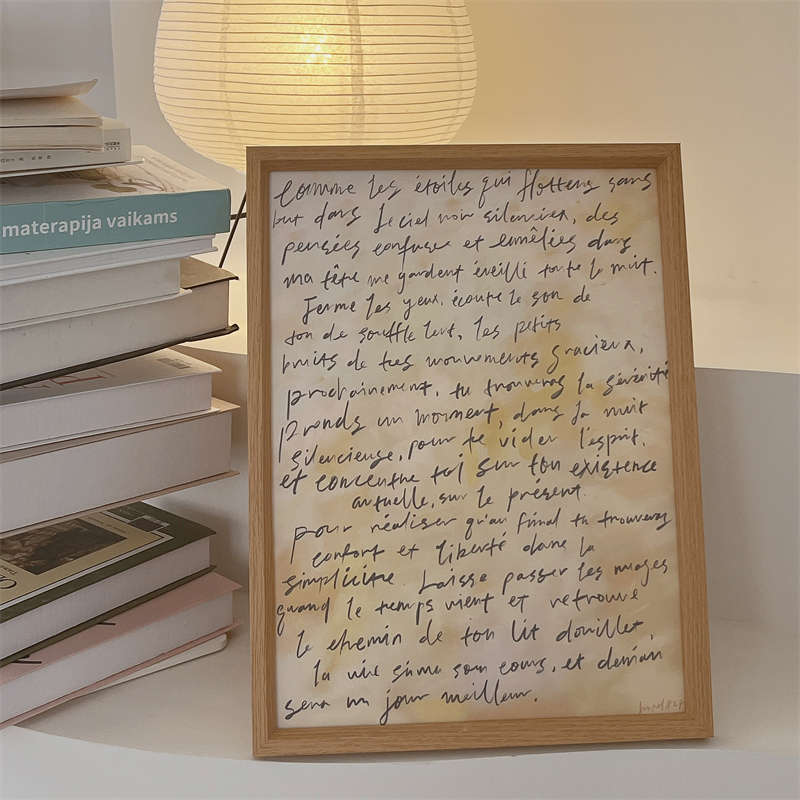 materapija vaikams
Comme les étoiles qui flottens sans
but dans le ciel noir silencieux, des
pensées confuses et emmêlées dans
ma tête me gardent éveillé toute la nuit.
Ferme les yeux, écoute le son de
ton de souffle lent, les petits
bruits de tes mouvements gracieux,
prochainement, tu trouveras la sévérité
prends un moment, dans la nuit
silencieuse, pour te vider l'esprit,
et concentre toi sur ton existence
actuelle, sur le présent.
pour réaliser qu'au final tu trouveras
confort et liberté dans la
simplicité. Laisse passer les nuages
quand le temps vient et retrouve
le chemin de ton lit douillet,
la vie suivra son cours, et demain
sera un jour meilleur.